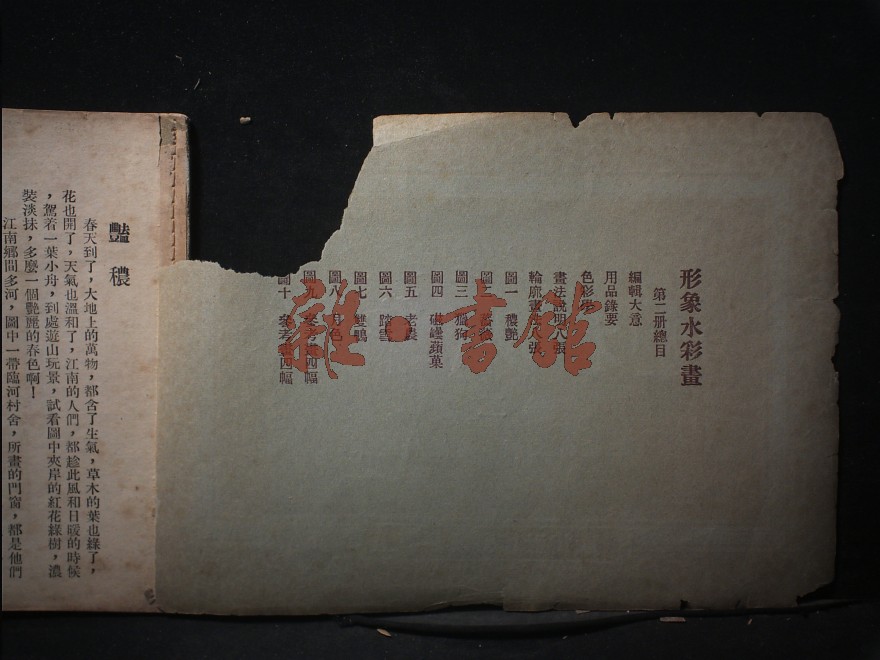 形象水彩畫
第二册總目
編輯大意
用品錄要
色彩
畫法說明八張
輪廓畫 八張
圖一 穠艷
圖二
圖三 獵狗
圖四 磁罎蘋菓
圖五 老農
圖六 踏雪
圖七 雙鴨
圖八 月色
圖九 參考畫四幅
圖十 參考畫四幅
雜·書館
豔穠
春天到了，大地上的萬物，都含了生氣，草木的葉也綠了，
花也開了，天氣也溫和了，江南的人們，都趁此風和日暖的時候
，駕着一葉小舟，到處遊山玩景，試看圖中夾岸的紅花綠樹，濃
裝淡抹，多麼一個艷麗的春色啊！
江南鄉間多河，圖中一帶臨河村舍，所畫的門窗，都是他們